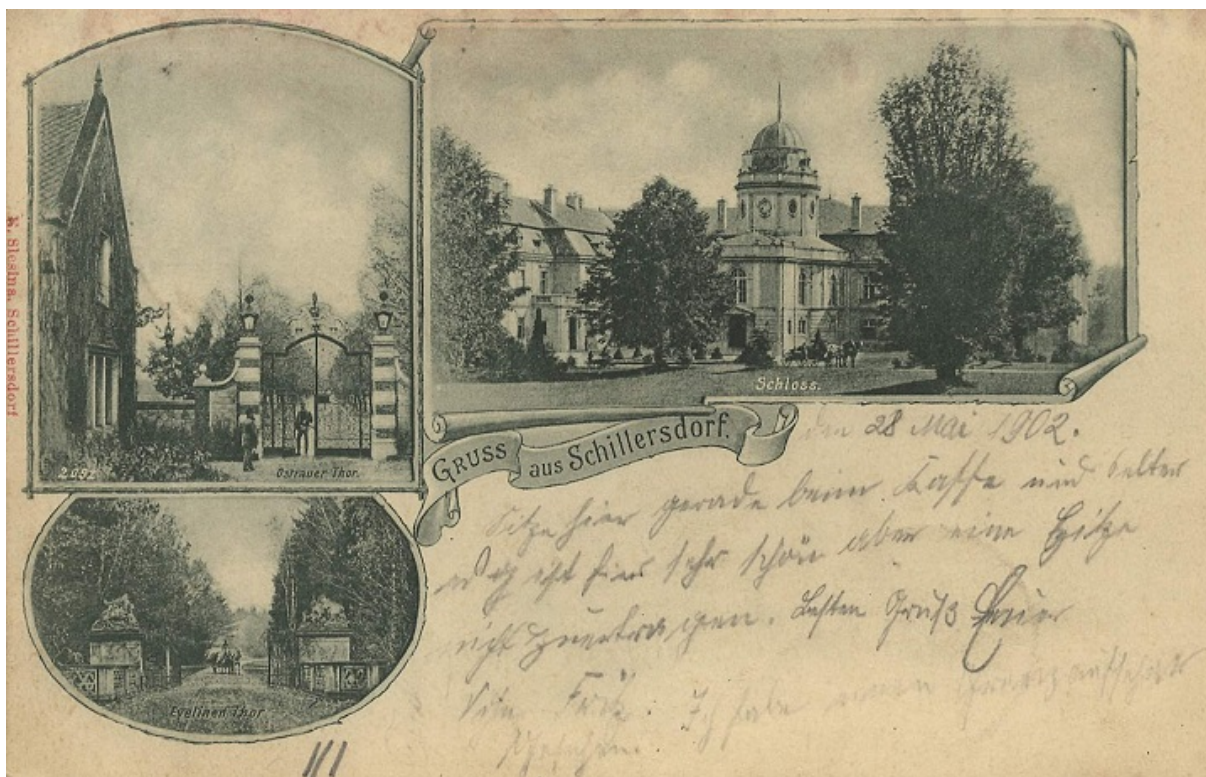 K. Slesina, Schillersdorf
2957
Ostrauer Thor.
Schloss.
GRUSS aus Schillersdorf.
Evelinen Thor
den 28 Mai 1902.
Sitze hier gerade beim Kaffe und
ist hier sehr schön aber eine Hitze
nicht zuertragen. Besten Gruß
Ich habe einen